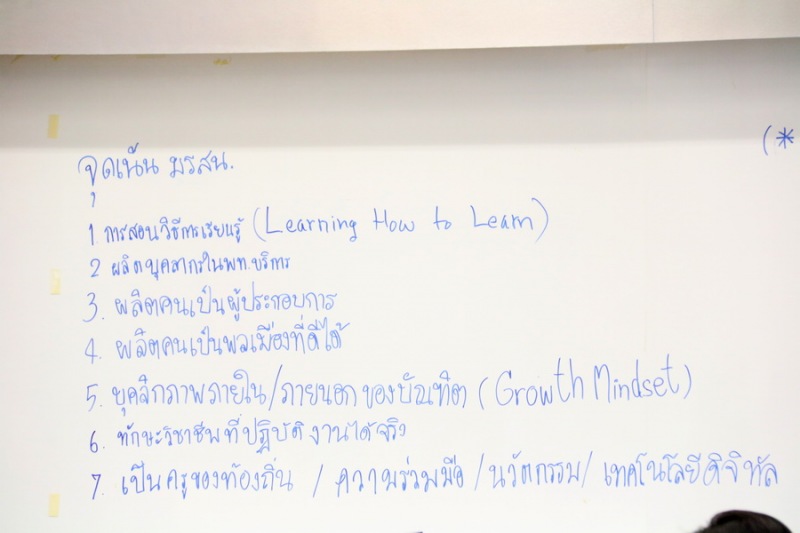 จุดเน้น มรสน.
(*
1 การสอนวิธีการเรียนรู้ (Learning How to Learn)
2 ผลิตบุคลากรในพท.บริการ
3. ผลิตคนเป็นผู้ประกอบการ
4. ผลิตคนเป็นพลเมืองที่ดีได้
5. บุคลิกภาพภายใน/ภายนอกของบัณฑิต (Growth Mindset)
6. ทักษะวิชาชีพที่ปฏิบัติงานได้จริง
7. เป็นครูของท้องถิ่น / ความร่วมมือ / นวัตกรรม / เทคโนโลยีดิจิทัล